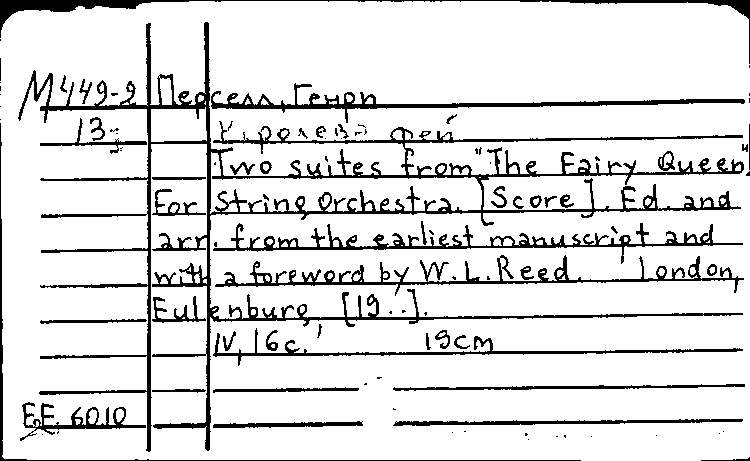 М449-2 Перселл, Генри
13з Королева фей
Two suites from "The Fairy Queen".
For String Orchestra. [Score]. Ed. and
arr. from the earliest manuscript and
with a foreword by W.L.Reed. London,
Eulenburg, [19..].
IV, 16с. 19см
E.E. 6010